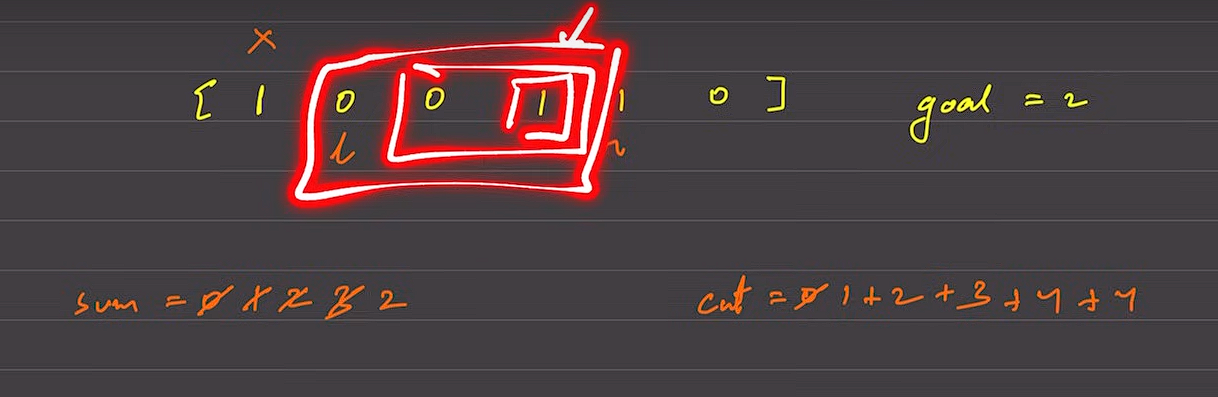 x
[ 1 0 0 1 1 0 ] goal = 2
l r
sum = 0 1 2 3 2 cnt = 0 1 + 2 + 3 + 4 + 4